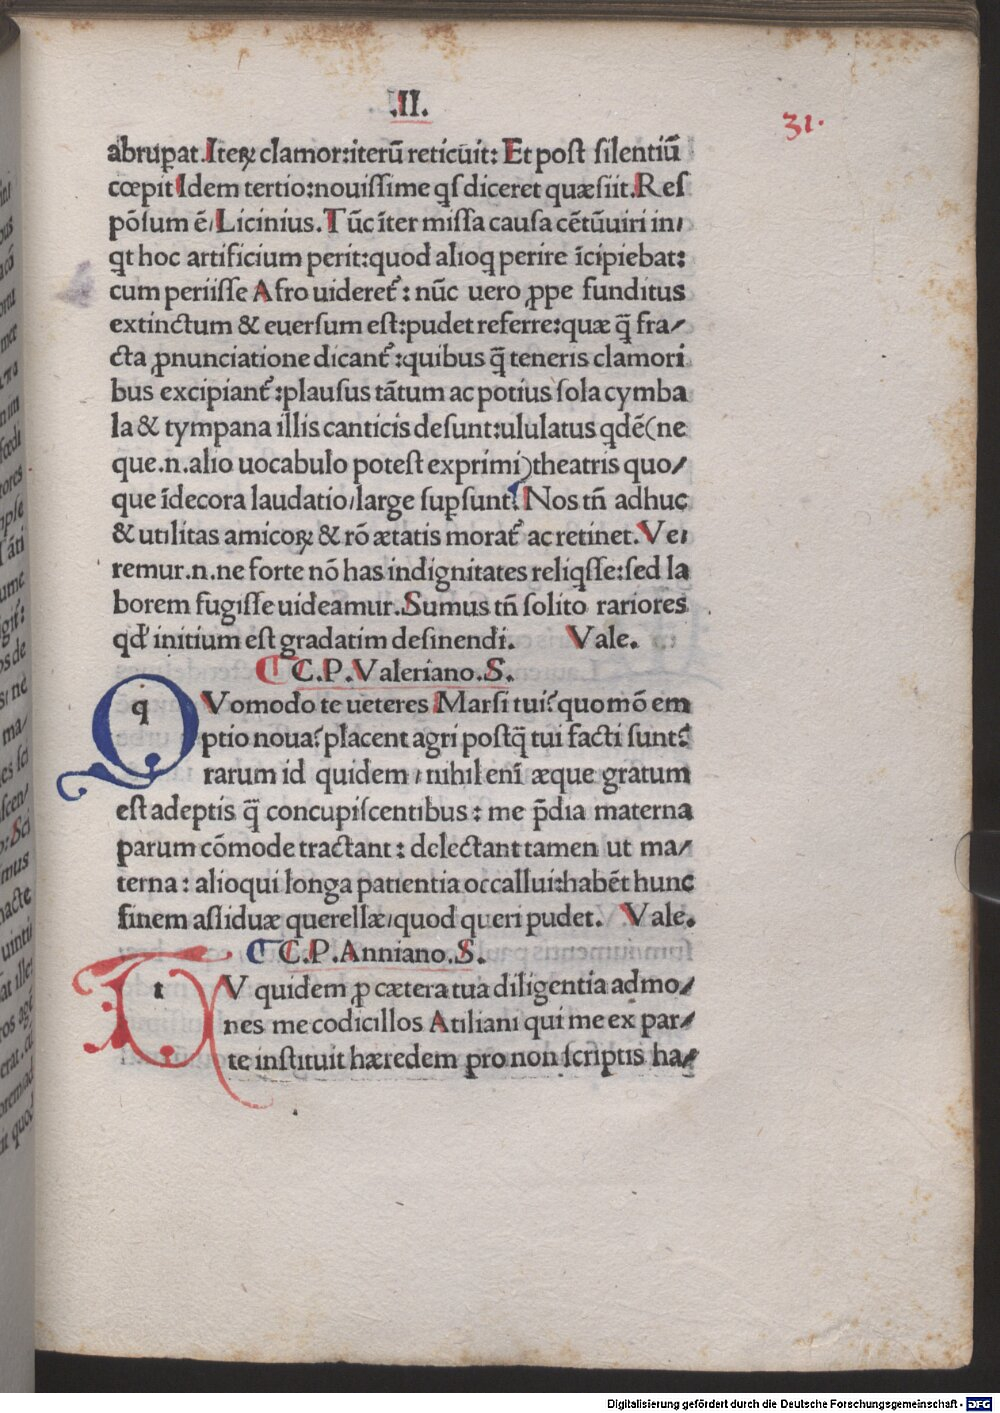 .II.
31.
abrupat. Iteꝝ clamor:iterū reticuit: Et post silentiū
cœpit Idem tertio:nouissime qs diceret quæsiit. Res
pōsum ē/ Licinius. Tūc īter missa causa cētūuiri in/
qt hoc artificium perit:quod alioq perire īcipiebat:
cum periisse Afro uideret᷑: nūc uero ꝓpe funditus
extinctum & euersum est:pudet referre:quæ q̄ fra/
cta ꝓnunciatione dicant᷑:quibus q̄ teneris clamori
bus excipiant᷑:plausus tātum ac potius sola cymba
la & tympana illis canticis desunt:ululatus qdē(ne
que.n.alio uocabulo potest exprimi)theatris quo/
que īdecora laudatio/large suꝑsunt. Nos tn̄ adhuc
& utilitas amicoꝝ & rō ætatis morat᷑ ac retinet. Ve/
remur.n.ne forte nō has indignitates reliqsse:sed la
borem fugisse uideamur. Sumus tn̄ solito rariores
qd' initium est gradatim desinendi. Vale.
C.P.Valeriano.S.
q Vomodo te ueteres Marsi tui? quomō em
ptio noua? placent agri postq̄ tui facti sunt?
rarum id quidem/nihil enī æque gratum
est adeptis q̄ concupiscentibus: me p̄dia materna
parum cōmode tractant: delectant tamen ut ma/
terna: alioqui longa patientia occallui:habēt hunc
finem assiduæ querellæ/quod queri pudet. Vale.
C.P.Anniano.S.
t V quidem ꝓ cætera tua diligentia admo/
nes me codicillos Atiliani qui me ex par/
te instituit hæredem pro non scriptis ha/
Digitalisierung gefördert durch die Deutsche Forschungsgemeinschaft - DFG